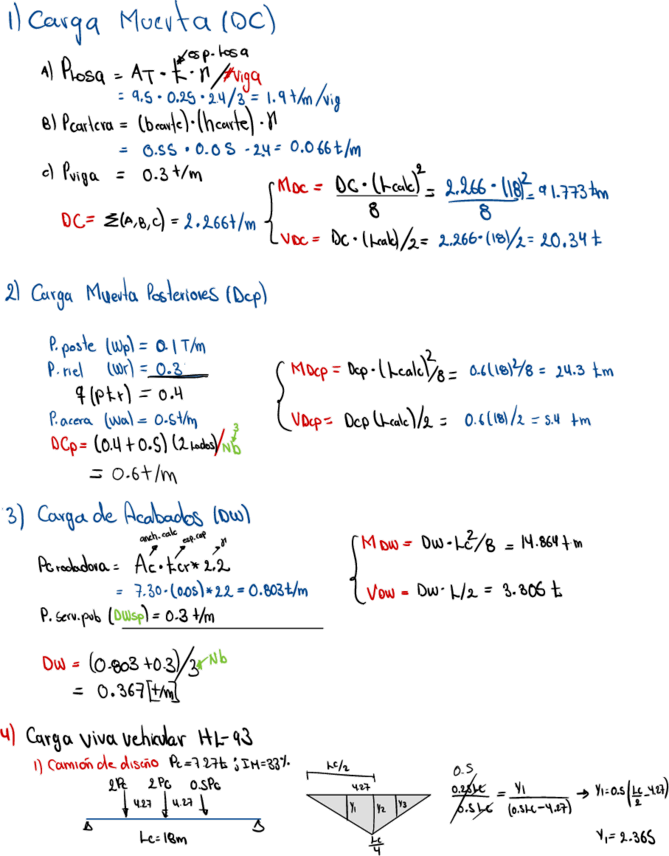 1) Carga Muerta (DC)
esp. losa
A) Plosa = AT · t · γ / #viga
= 9.5 · 0.25 · 2.4/3 = 1.9 t/m/vig
B) Pcartera = (bcarte) · (hcarte) · γ
= 0.55 · 0.05 · 2.4 = 0.066 t/m
c) Pviga = 0.3 t/m
DC = Σ(A,B,C) = 2.266 t/m
MDC = DC · (Lcalc)²/8 = 2.266 · (18)²/8 = 91.773 tm
VDC = DC · (Lcalc)/2 = 2.266 · (18)/2 = 20.34 t
2) Carga Muerta Posteriores (Dcp)
P. poste (Wp) = 0.1 T/m
P. riel (Wr) = 0.3
q (p+r) = 0.4
P. acera (Wa) = 0.5 t/m
DCp = (0.4 + 0.5) (2 lados) / Nb 3
= 0.6 t/m
MDcp = Dcp · (Lcalc)²/8 = 0.6(18)²/8 = 24.3 tm
VDcp = Dcp (Lcalc)/2 = 0.6(18)/2 = 5.4 tm
3) Carga de Acabados (DW)
anch. calc esp. cap γ
Pcrodadora = Ac · tcr * 2.2
= 7.30 · (0.05) * 2.2 = 0.803 t/m
P. serv. pub (DWsp) = 0.3 t/m
DW = (0.803 + 0.3)/3 Nb
= 0.367 [t/m]
MDW = DW · Lc²/8 = 14.864 t m
VDW = DW · L/2 = 3.306 t
4) Carga viva vehicular HL-93
1) Camión de diseño Pc = 7.27t ; IM = 33%.
2Pc 2Pc 0.5Pc
4.27 4.27
Lc = 18m
Lc/2
4.27
y1 y2 y3
Lc/4
0.5
0.25Lc/0.5Lc = y1/(0.5Lc - 4.27) → y1 = 0.5 (Lc/2 - 4.27)
y1 = 2.365